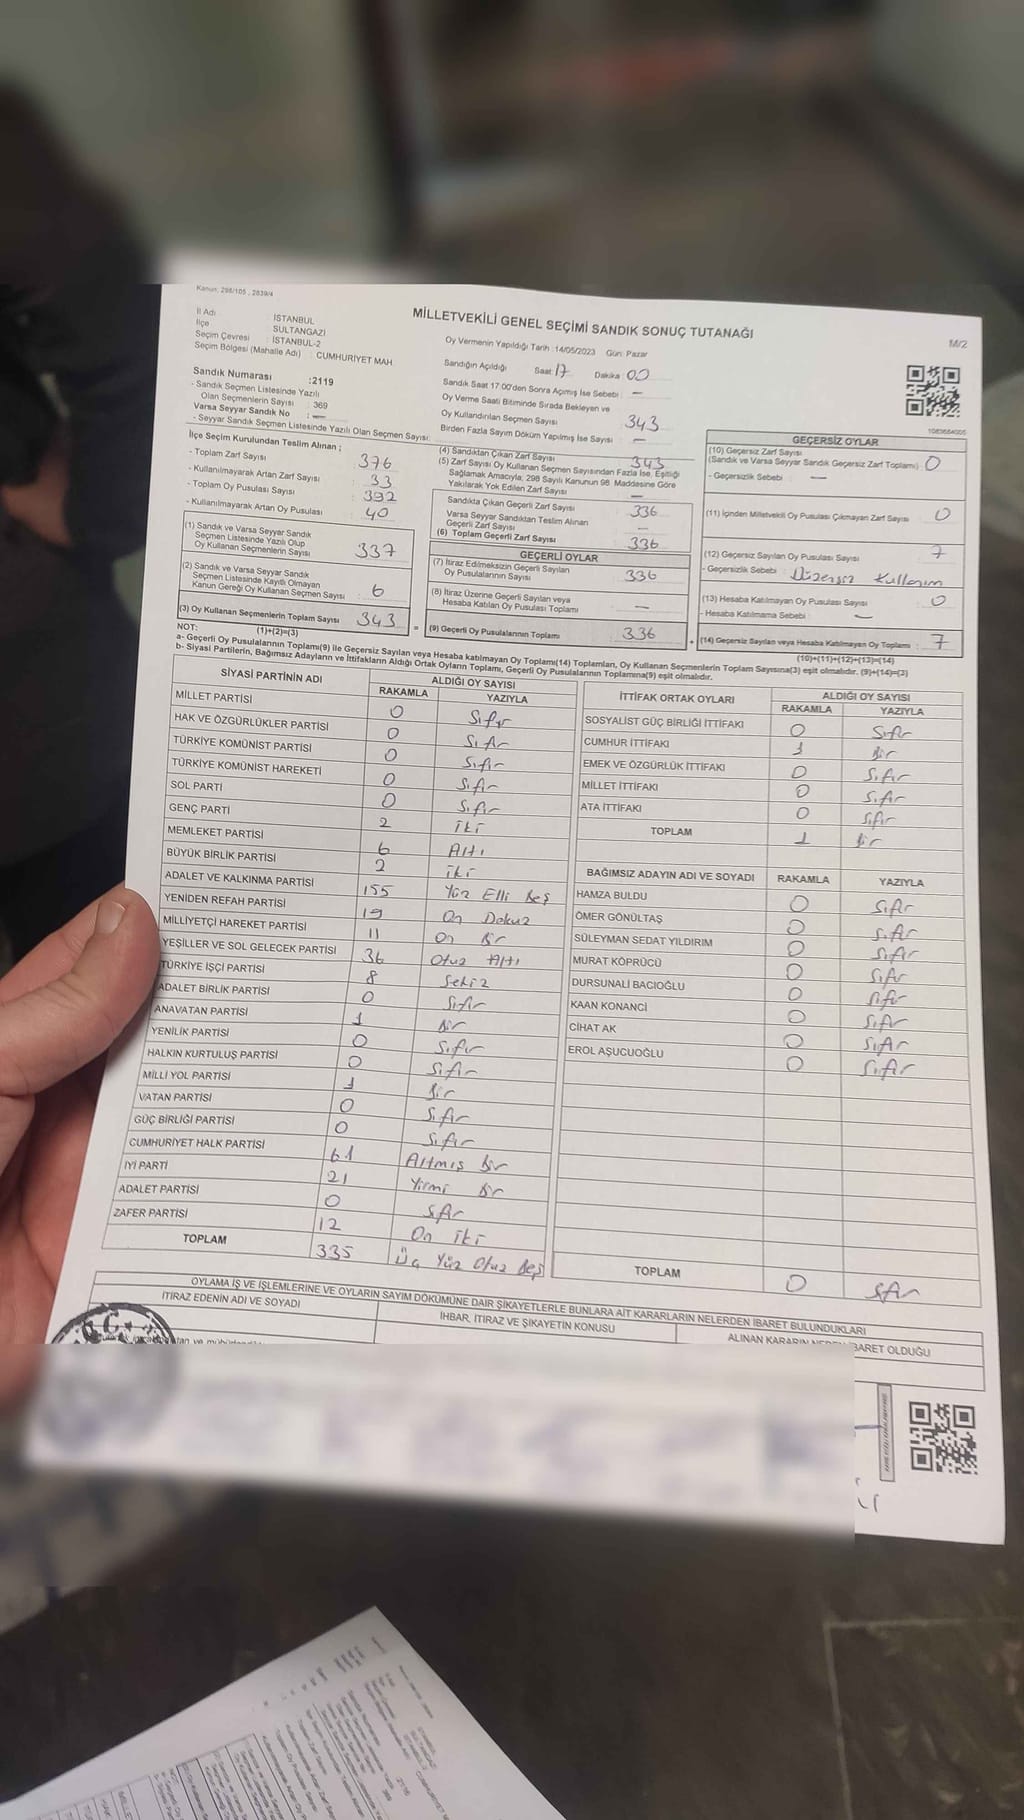 Kanun: 298/105 , 2839/4
MİLLETVEKİLİ GENEL SEÇİMİ SANDIK SONUÇ TUTANAĞI
M/2
İl Adı : İSTANBUL
İlçe : SULTANGAZİ
Seçim Çevresi : İSTANBUL-2
Seçim Bölgesi (Mahalle Adı) : CUMHURİYET MAH
Sandık Numarası :2119
- Sandık Seçmen Listesinde Yazılı
Olan Seçmenlerin Sayısı : 369
Varsa Seyyar Sandık No : —
- Seyyar Sandık Seçmen Listesinde Yazılı Olan Seçmen Sayısı:
Oy Vermenin Yapıldığı Tarih :14/05/2023 Gün: Pazar
Sandığın Açıldığı Saat: 17 Dakika: 00
Sandık Saat 17:00'den Sonra Açımış İse Sebebi : —
Oy Verme Saati Bitiminde Sırada Bekleyen ve
Oy Kullandırılan Seçmen Sayısı 343
Birden Fazla Sayım Döküm Yapılmış İse Sayısı : —
1083684005
İlçe Seçim Kurulundan Teslim Alınan ;
- Toplam Zarf Sayısı 376
- Kullanılmayarak Artan Zarf Sayısı : 33
- Toplam Oy Pusulası Sayısı 392
- Kullanılmayarak Artan Oy Pusulası 40
(1) Sandık ve Varsa Seyyar Sandık
Seçmen Listesinde Yazılı Olup
Oy Kullanan Seçmenlerin Sayısı 337
(2) Sandık ve Varsa Seyyar Sandık
Seçmen Listesinde Kayıtlı Olmayan
Kanun Gereği Oy Kullanan Seçmen Sayısı : 6
(3) Oy Kullanan Seçmenlerin Toplam Sayısı 343
(4) Sandıktan Çıkan Zarf Sayısı : 343
(5) Zarf Sayısı Oy Kullanan Seçmen Sayısından Fazla İse, Eşitliği
Sağlamak Amacıyla, 298 Sayılı Kanunun 98. Maddesine Göre
Yakılarak Yok Edilen Zarf Sayısı —
Sandıkta Çıkan Geçerli Zarf Sayısı 336
Varsa Seyyar Sandıktan Teslim Alınan
Geçerli Zarf Sayısı —
(6) Toplam Geçerli Zarf Sayısı 336
GEÇERLİ OYLAR
(7) İtiraz Edilmeksizin Geçerli Sayılan
Oy Pusulalarının Sayısı 336
(8) İtiraz Üzerine Geçerli Sayılan veya
Hesaba Katılan Oy Pusulası Toplamı —
= (9) Geçerli Oy Pusulalarının Toplamı 336
GEÇERSİZ OYLAR
(10) Geçersiz Zarf Sayısı
(Sandık ve Varsa Seyyar Sandık Geçersiz Zarf Toplamı) : 0
- Geçersizlik Sebebi : —
(11) İçinden Milletvekili Oy Pusulası Çıkmayan Zarf Sayısı 0
(12) Geçersiz Sayılan Oy Pusulası Sayısı 7
- Geçersizlik Sebebi : Düzensiz Kullanım
(13) Hesaba Katılmayan Oy Pusulası Sayısı 0
- Hesaba Katılmama Sebebi : —
+ (14) Geçersiz Sayılan veya Hesaba Katılmayan Oy Toplamı : 7
NOT: (1)+(2)=(3)
(10)+(11)+(12)+(13)=(14)
a- Geçerli Oy Pusulalarının Toplamı(9) ile Geçersiz Sayılan veya Hesaba katılmayan Oy Toplamı(14) Toplamları, Oy Kullanan Seçmenlerin Toplam Sayısına(3) eşit olmalıdır. (9)+(14)=(3)
b- Siyasi Partilerin, Bağımsız Adayların ve İttifakların Aldığı Ortak Oyların Toplamı, Geçerli Oy Pusulalarının Toplamına(9) eşit olmalıdır.
SİYASİ PARTİNİN ADI ALDIĞI OY SAYISI
RAKAMLA YAZIYLA
MİLLET PARTİSİ 0 Sıfır
HAK VE ÖZGÜRLÜKLER PARTİSİ 0 Sıfır
TÜRKİYE KOMÜNİST PARTİSİ 0 Sıfır
TÜRKİYE KOMÜNİST HAREKETİ 0 Sıfır
SOL PARTİ 0 Sıfır
GENÇ PARTİ 2 iki
MEMLEKET PARTİSİ 6 Altı
BÜYÜK BİRLİK PARTİSİ 2 iki
ADALET VE KALKINMA PARTİSİ 155 Yüz Elli Beş
YENİDEN REFAH PARTİSİ 19 On Dokuz
MİLLİYETÇİ HAREKET PARTİSİ 11 On Bir
YEŞİLLER VE SOL GELECEK PARTİSİ 36 Otuz Altı
TÜRKİYE İŞÇİ PARTİSİ 8 Sekiz
ADALET BİRLİK PARTİSİ 0 Sıfır
ANAVATAN PARTİSİ 1 Bir
YENİLİK PARTİSİ 0 Sıfır
HALKIN KURTULUŞ PARTİSİ 0 Sıfır
MİLLİ YOL PARTİSİ 1 Bir
VATAN PARTİSİ 0 Sıfır
GÜÇ BİRLİĞİ PARTİSİ 0 Sıfır
CUMHURİYET HALK PARTİSİ 61 Altmış Bir
İYİ PARTİ 21 Yirmi Bir
ADALET PARTİSİ 0 Sıfır
ZAFER PARTİSİ 12 On iki
TOPLAM 335 Üç Yüz Otuz Beş
İTTİFAK ORTAK OYLARI ALDIĞI OY SAYISI
RAKAMLA YAZIYLA
SOSYALİST GÜÇ BİRLİĞİ İTTİFAKI 0 Sıfır
CUMHUR İTTİFAKI 1 Bir
EMEK VE ÖZGÜRLÜK İTTİFAKI 0 Sıfır
MİLLET İTTİFAKI 0 Sıfır
ATA İTTİFAKI 0 Sıfır
TOPLAM 1 Bir
BAĞIMSIZ ADAYIN ADI VE SOYADI RAKAMLA YAZIYLA
HAMZA BULDU 0 Sıfır
ÖMER GÖNÜLTAŞ 0 Sıfır
SÜLEYMAN SEDAT YILDIRIM 0 Sıfır
MURAT KÖPRÜCÜ 0 Sıfır
DURSUNALİ BACIOĞLU 0 Sıfır
KAAN KONANCİ 0 Sıfır
CİHAT AK 0 Sıfır
EROL AŞUCUOĞLU 0 Sıfır
TOPLAM 0 Sıfır
OYLAMA İŞ VE İŞLEMLERİNE VE OYLARIN SAYIM DÖKÜMÜNE DAİR ŞİKAYETLERLE BUNLARA AİT KARARLARIN NELERDEN İBARET BULUNDUKLARI
İTİRAZ EDENİN ADI VE SOYADI
İHBAR, İTİRAZ VE ŞİKAYETİN KONUSU
ALINAN KARARIN NEDEN İBARET OLDUĞU